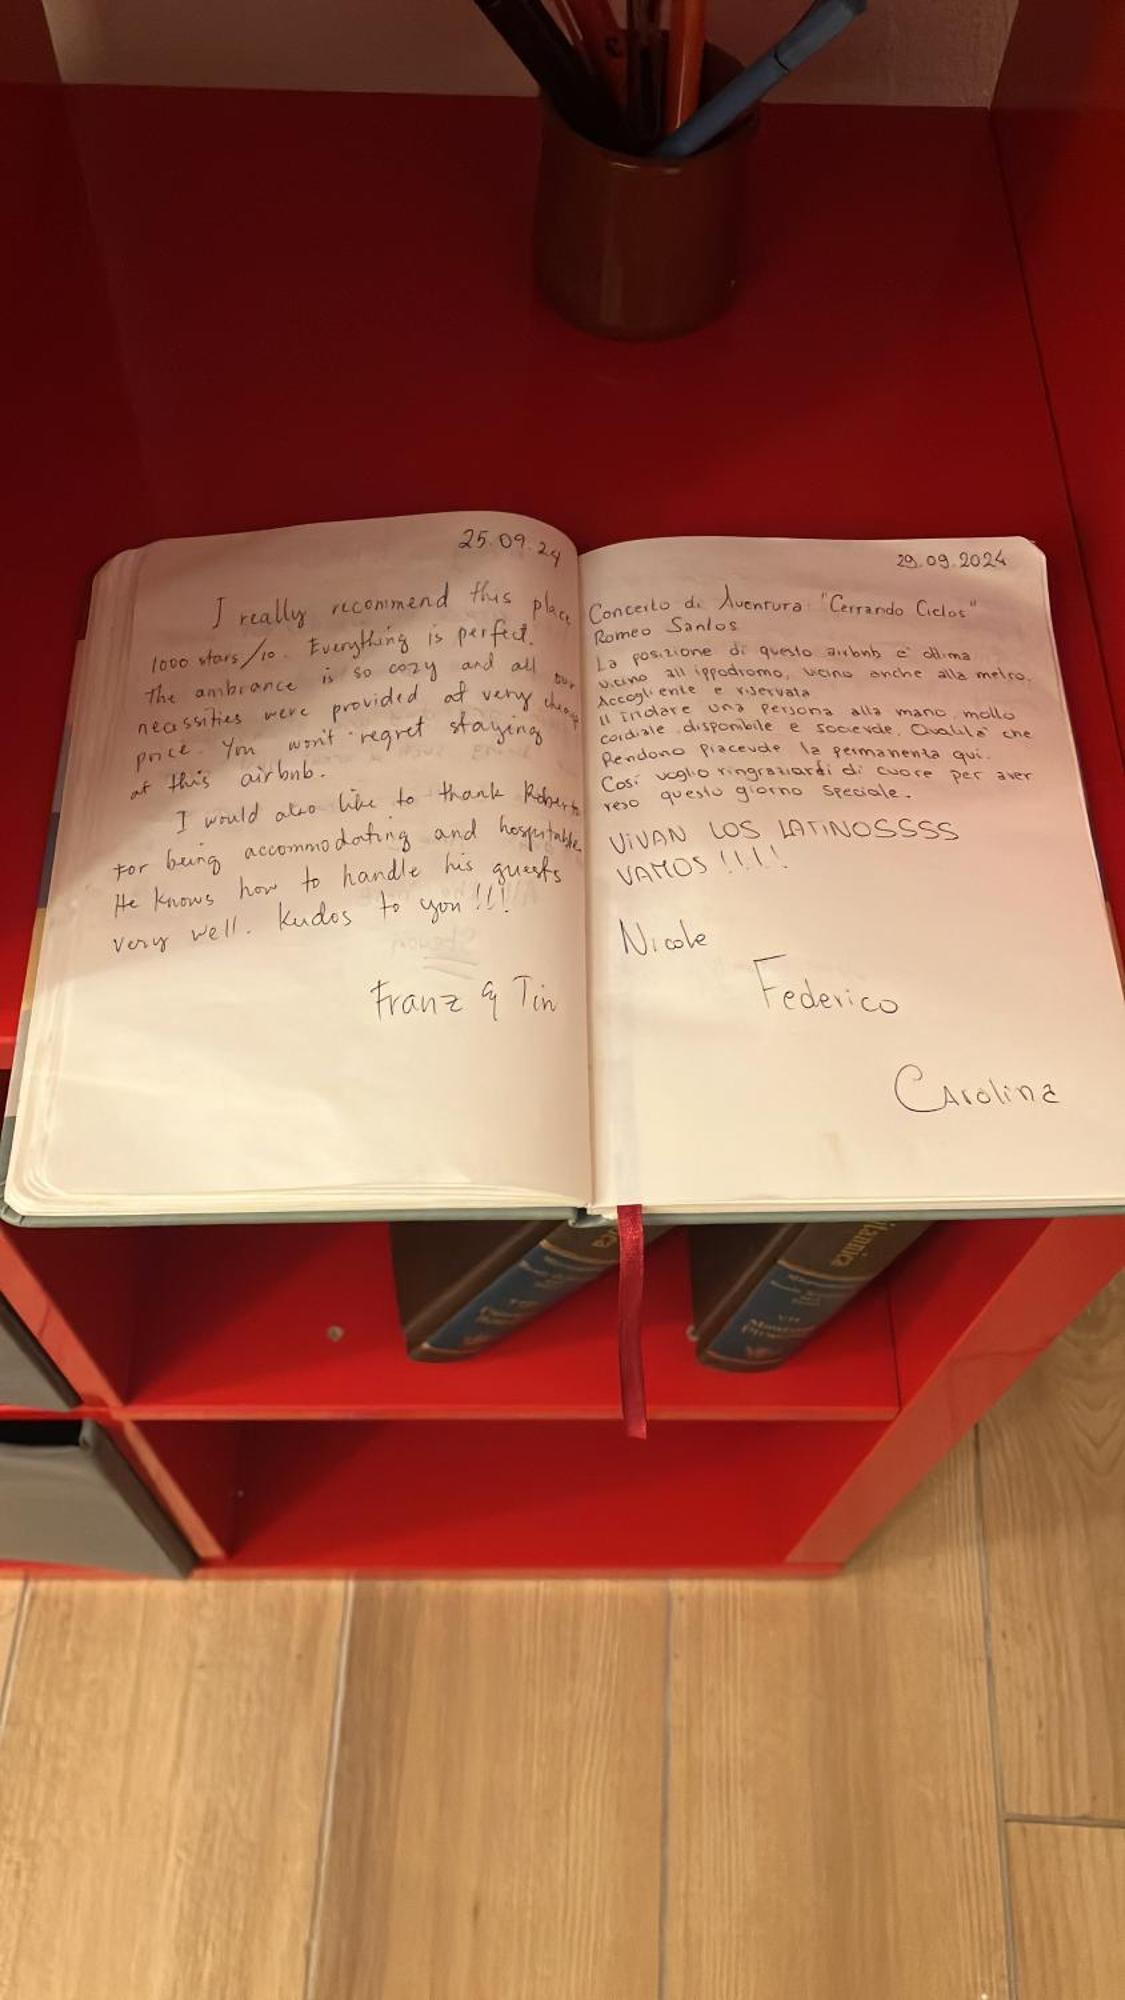 25.09.24
I really recommend this place
1000 stars/10. Everything is perfect.
The ambrance is so cozy and all our
necessities were provided at very cheap
price. You won't regret staying
at this airbnb.
I would also like to thank Roberto
for being accommodating and hospitable.
He knows how to handle his guests
very well. Kudos to you!!!
Franz & Tin
29.09.2024
Concerto di Aventura "Cerrando Ciclos"
Romeo Santos
La posizione di questo airbnb è ottima
vicino all'ippodromo, vicino anche alla metro.
Accogliente e riservata
Il titolare una persona alla mano, molto
cordiale, disponibile e socievole. Qualità che
Rendono piacevole la permanenta qui.
Così voglio ringraziarti di cuore per aver
reso questo giorno speciale.
VIVAN LOS LATINOSSSS
VAMOS !!!!
Nicole
Federico
Carolina